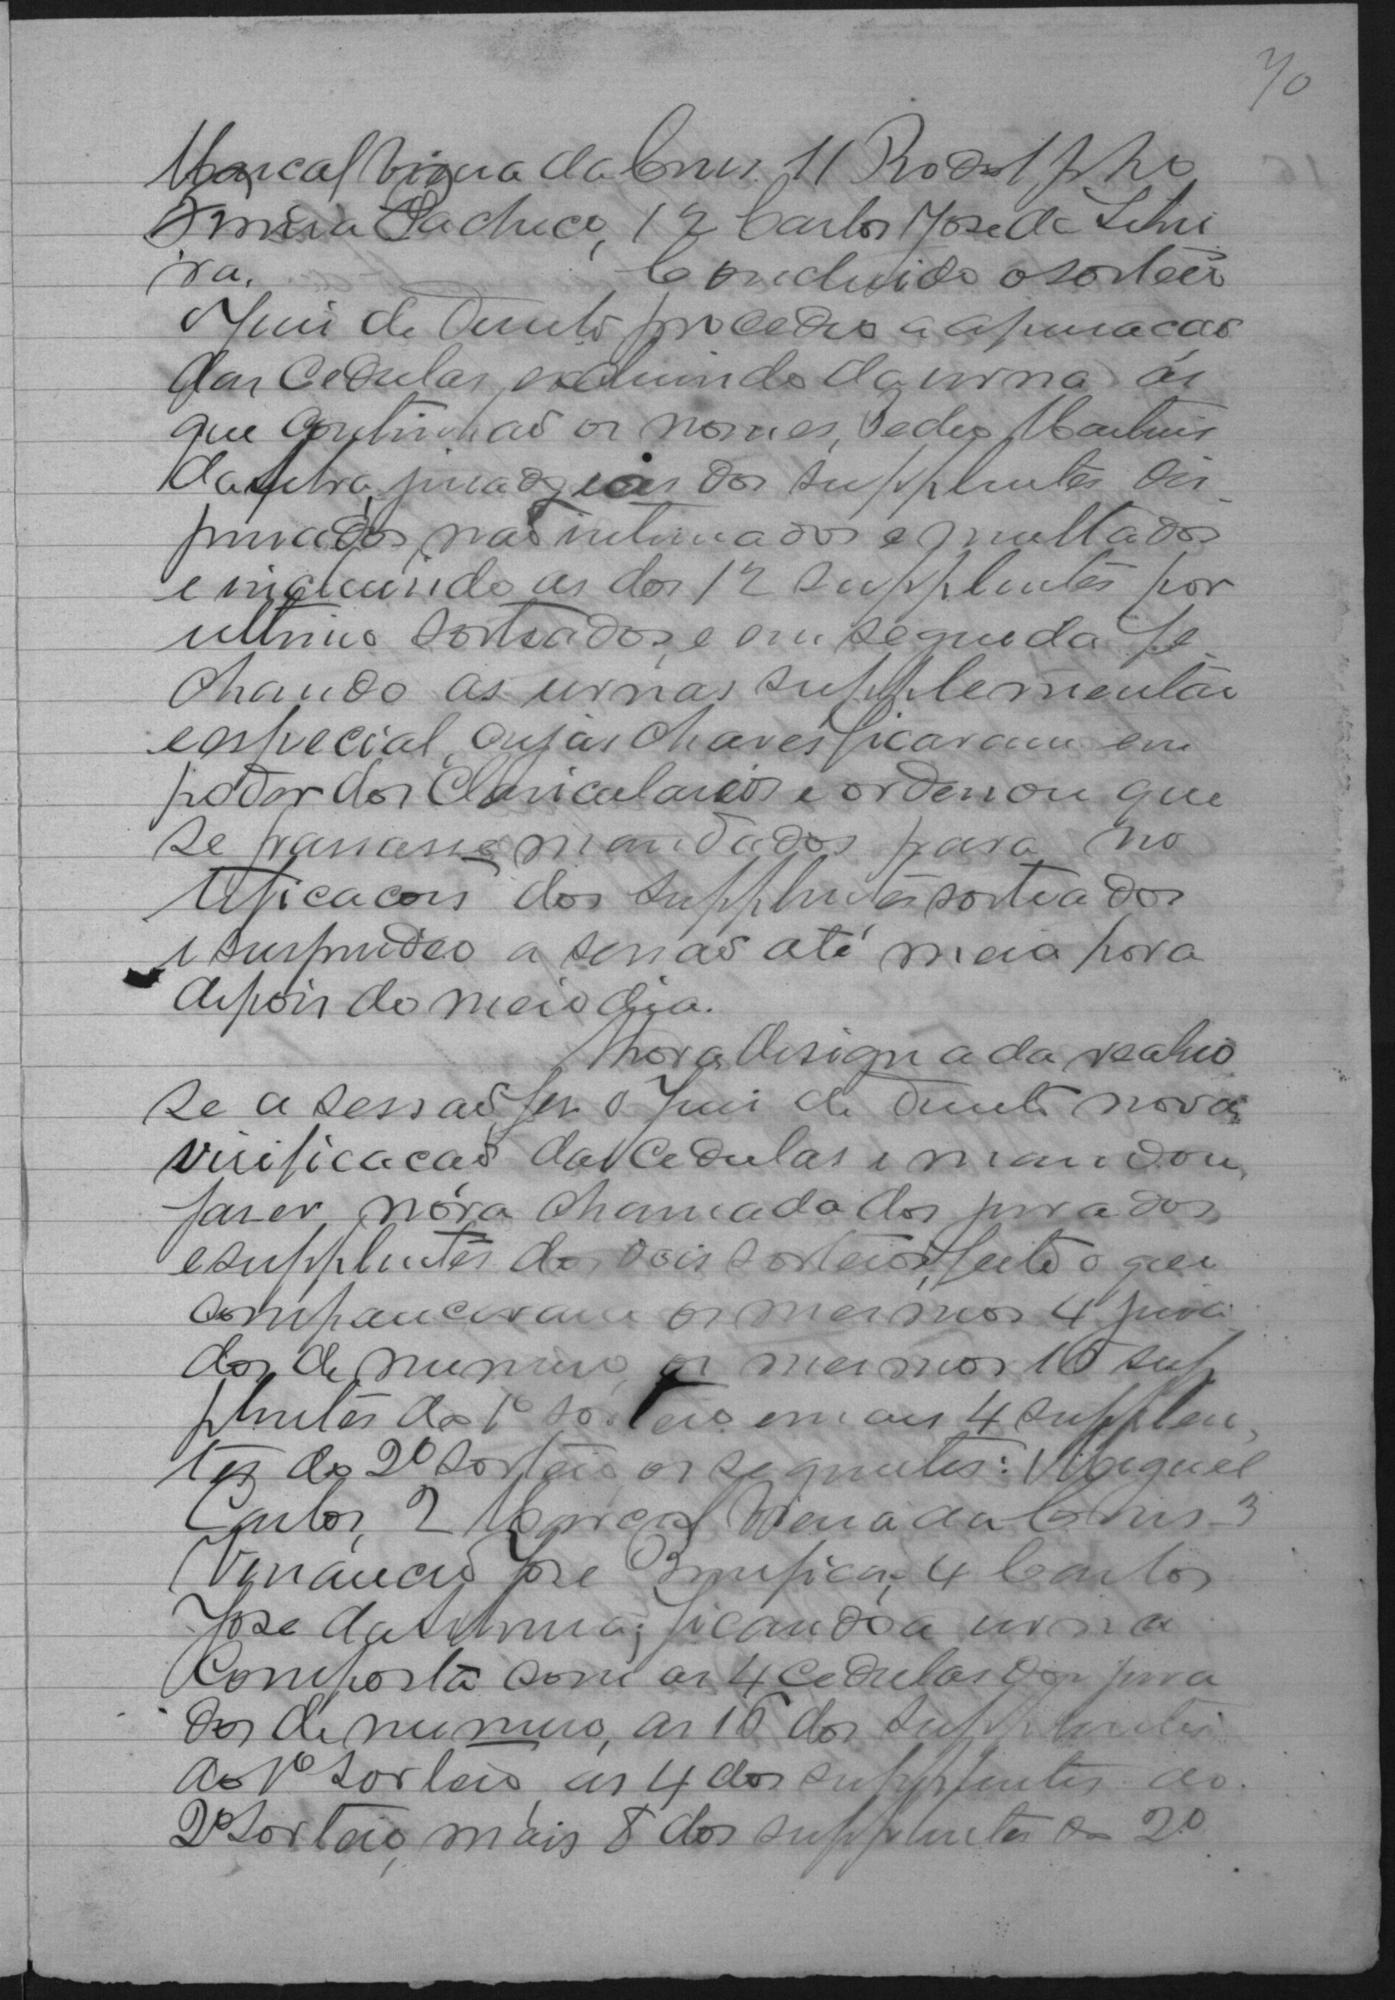 70
Marcal Vieira da Crus. 11 Rodolpho
Pacheco, 12 Carlos José da Silvei
ra. Concluido o sorteio
o Juis de Dereito procedeo a apuracaõ
das Cedulas, excluindo da urna as
que continhaõ os nomes, Pedro Martins
da Silva, dos supplentes dis
pensados, naõ intimados e multados
e incluindo as dos 12 supplentes por
ultimo sorteados, e em seguida fe
chando as urnas supplementar
e especial, cujas chaves ficaram em
poder dos Claviculacios e ordenou que
se passasse mandados para no
tificacoes dos supplentes sorteados
e suspendeo a sessaõ até meia hora
depois do meio dia.
Á hora designada reabrio
se a sessaõ, fes o Juis de Dereito nova
verificacaõ das Cedulas e mandou
faser nóva chamada dos jurados
e supplentes dos dois sorteios, feito o que
compareceram os mesmos 4 jura
dos de numero, os mesmos 16 sup
plentes do 1º sorteio e mais 4 supplen
tes do 2º sorteio os seguintes: 1 Miguel
Carlos, 2 Marcal Vieira da Crus 3
Venâncio José Bemfica, 4 Carlos
José da Silveira; ficando a urna
Composta com as 4 cedulas dos jura
dos de numero, as 16 dos supplentes
do 1º sorteio, as 4 dos supplentes do
2º sorteio, mais 8 dos supplentes do 2º